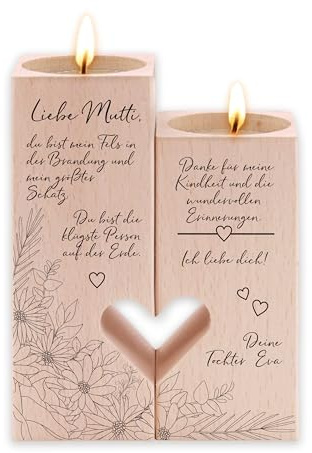 Liebe Mutti,
du bist mein Fels in
der Brandung und
mein größter
Schatz.
Du bist die
klügste Person
auf der Erde.
Danke für meine
Kindheit und die
wundervollen
Erinnerungen.
Ich liebe dich!
Deine
Tochter Eva